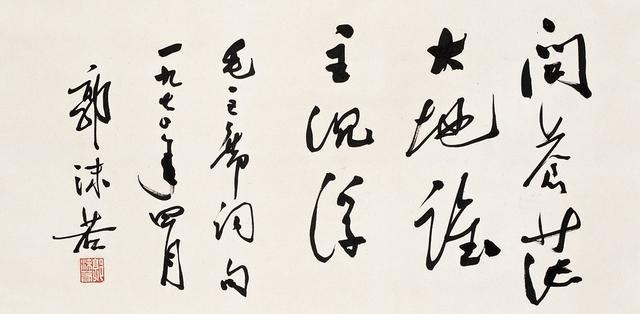 问蒼茫
大地谁
主沉浮
毛主席词句
一九七〇年四月
郭沫若